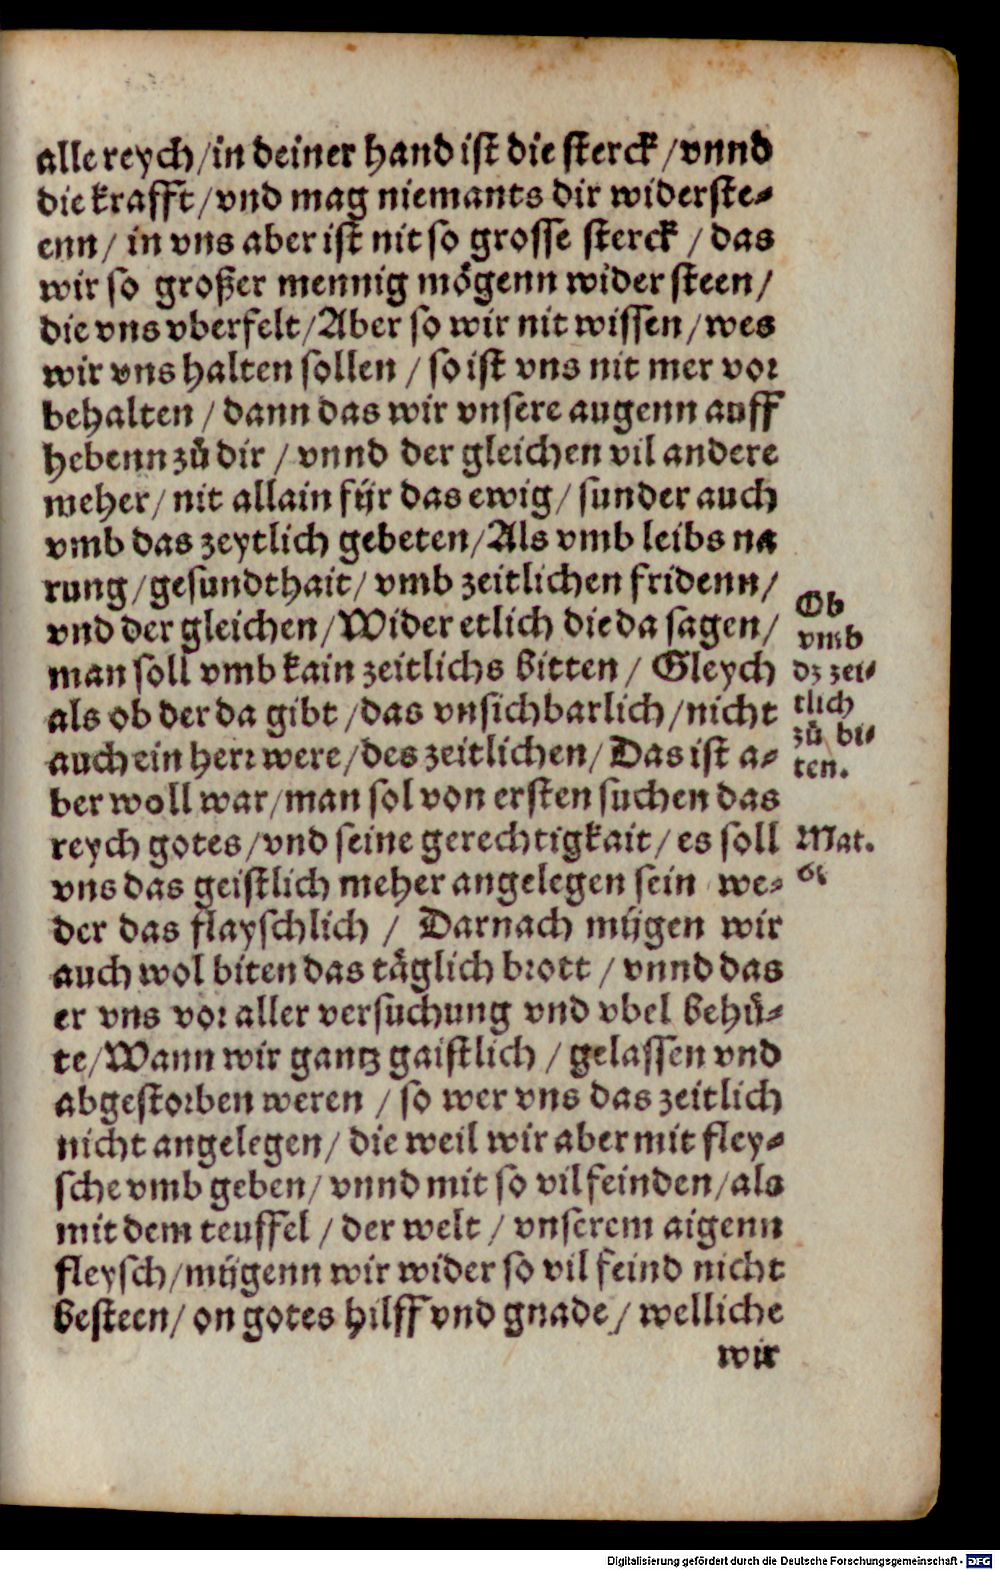 alle reych/in deiner hand ist die sterck/vnnd
die krafft/vnd mag niemants dir widerste⸗
enn/ in vns aber ist nit so grosse sterck/das
wir so großer mennig mögenn wider steen/
die vns vberfelt/Aber so wir nit wissen/wes
wir vns halten sollen/so ist vns nit mer vor
behalten/dann das wir vnsere augenn auff
hebenn zů dir/vnnd der gleichen vil andere
meher/nit allain fűr das ewig/sunder auch
vmb das zeytlich gebeten/Als vmb leibs na
rung/gesundthait/vmb zeitlichen fridenn/
vnd der gleichen/Wider etlich die da sagen/
man soll vmb kain zeitlichs bitten/ Gleych
als ob der da gibt/das vnsichbarlich/nicht
auch ein herr were/des zeitlichen/Das ist a⸗
ber woll war/man sol von ersten suchen das
reych gotes/vnd seine gerechtigkait/es soll
vns das geistlich meher angelegen sein we⸗
der das flayschlich/ Darnach műgen wir
auch wol biten das täglich brott/vnnd das
er vns vor aller versuchung vnd vbel behů⸗
te/Wann wir gantz gaistlich/gelassen vnd
abgestorben weren/so wer vns das zeitlich
nicht angelegen/die weil wir aber mit fley⸗
sche vmb geben/vnnd mit so vil feinden/als
mit dem teuffel/der welt/vnserem aigenn
fleysch/műgenn wir wider so vil feind nicht
besteen/on gotes hilff vnd gnade/welliche
wir
Ob
vmb
dz zei⸗
tlich
zů bi⸗
ten.
Mat.
6
Digitalisierung gefördert durch die Deutsche Forschungsgemeinschaft - DFG